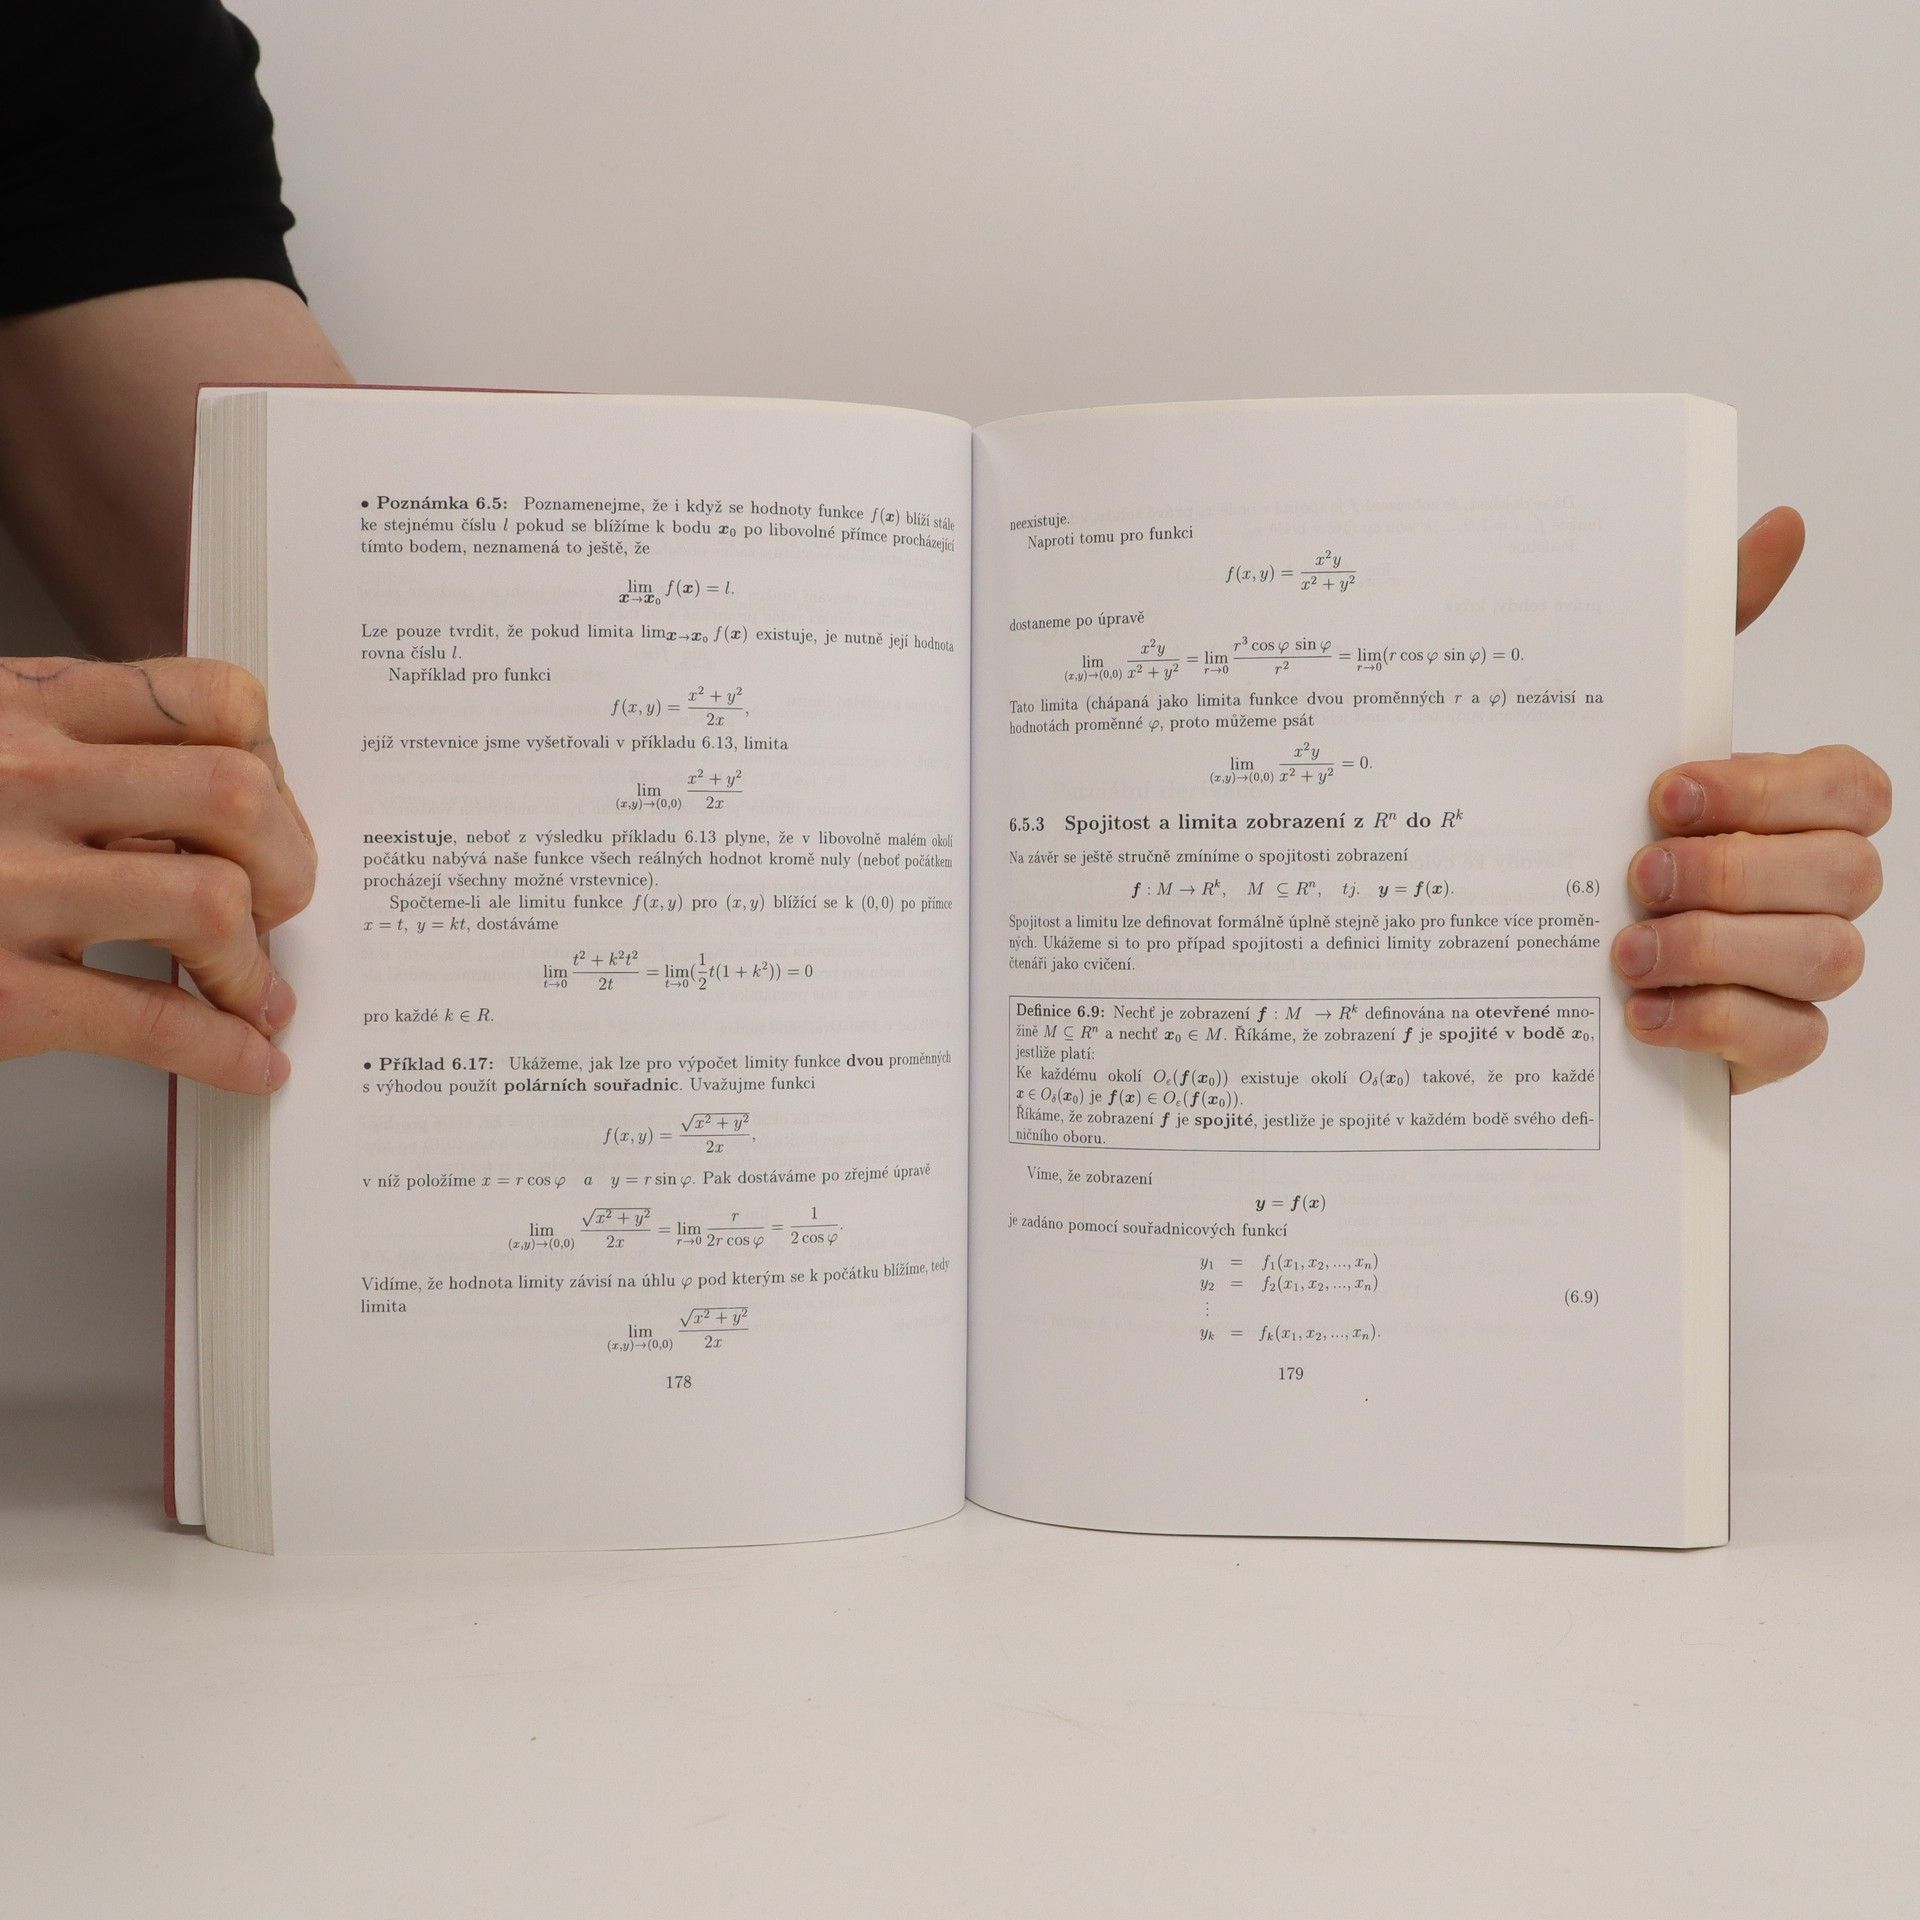 • Poznámka 6.5: Poznamenejme, že i když se hodnoty funkce f(x) blíží stále
ke stejnému číslu l pokud se blížíme k bodu x₀ po libovolné přímce procházející
tímto bodem, neznamená to ještě, že
lim_{x→x₀} f(x) = l.
Lze pouze tvrdit, že pokud limita lim_{x→x₀} f(x) existuje, je nutně její hodnota
rovna číslu l.
Například pro funkci
f(x, y) = (x² + y²)/(2x),
jejíž vrstevnice jsme vyšetřovali v příkladu 6.13, limita
lim_{(x,y)→(0,0)} (x² + y²)/(2x)
neexistuje, neboť z výsledku příkladu 6.13 plyne, že v libovolně malém okolí
počátku nabývá naše funkce všech reálných hodnot kromě nuly (neboť počátkem
procházejí všechny možné vrstevnice).
Spočteme-li ale limitu funkce f(x, y) pro (x, y) blížící se k (0, 0) po přímce
x = t, y = kt, dostáváme
lim_{t→0} (t² + k²t²)/(2t) = lim_{t→0}(½t(1 + k²)) = 0
pro každé k ∈ R.
• Příklad 6.17: Ukážeme, jak lze pro výpočet limity funkce dvou proměnných
s výhodou použít polárních souřadnic. Uvažujme funkci
f(x, y) = √(x² + y²)/(2x),
v níž položíme x = r cos φ a y = r sin φ. Pak dostáváme po zřejmé úpravě
lim_{(x,y)→(0,0)} √(x² + y²)/(2x) = lim_{r→0} r/(2r cos φ) = 1/(2 cos φ).
Vidíme, že hodnota limity závisí na úhlu φ pod kterým se k počátku blížíme, tedy
limita
lim_{(x,y)→(0,0)} √(x² + y²)/(2x)
178
neexistuje.
Naproti tomu pro funkci
f(x, y) = x²y/(x² + y²)
dostaneme po úpravě
lim_{(x,y)→(0,0)} x²y/(x² + y²) = lim_{r→0} (r³ cos φ sin φ)/r² = lim_{r→0}(r cos φ sin φ) = 0.
Tato limita (chápaná jako limita funkce dvou proměnných r a φ) nezávisí na
hodnotách proměnné φ, proto můžeme psát
lim_{(x,y)→(0,0)} x²y/(x² + y²) = 0.
6.5.3 Spojitost a limita zobrazení z Rⁿ do Rᵏ
Na závěr se ještě stručně zmíníme o spojitosti zobrazení
f : M → Rᵏ, M ⊆ Rⁿ, tj. y = f(x). (6.8)
Spojitost a limitu lze definovat formálně úplně stejně jako pro funkce více proměn-
ných. Ukážeme si to pro případ spojitosti a definici limity zobrazení ponecháme
čtenáři jako cvičení.
Definice 6.9: Nechť je zobrazení f : M → Rᵏ definována na otevřené mno-
žině M ⊆ Rⁿ a nechť x₀ ∈ M. Říkáme, že zobrazení f je spojité v bodě x₀,
jestliže platí:
Ke každému okolí O_ε(f(x₀)) existuje okolí O_δ(x₀) takové, že pro každé
x ∈ O_δ(x₀) je f(x) ∈ O_ε(f(x₀)).
Říkáme, že zobrazení f je spojité, jestliže je spojité v každém bodě svého defi-
ničního oboru.
Víme, že zobrazení
y = f(x)
je zadáno pomocí souřadnicových funkcí
y₁ = f₁(x₁, x₂, ..., xₙ)
y₂ = f₂(x₁, x₂, ..., xₙ)
⋮ (6.9)
yₖ = fₖ(x₁, x₂, ..., xₙ).
179